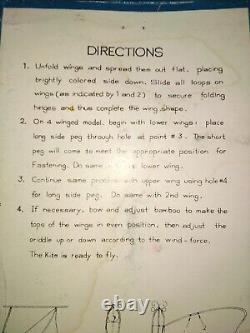 DIRECTIONS
1. Unfold wings and spread them out flat, placing
brightly colored side down. Slide all loops on
wings (as indicated by 1 and 2) to secure folding
hinges and thus complete the wing shape.
2. On 4 winged model, begin with lower wings : place
long side peg through hole at point #3. The short
peg will come to meet the appropriate position for
Fastening. Do same with lower wing.
3. Continue same process with upper wing using hole #4
for long side peg. Do same with 2nd wing.
4. If necessary, bow and adjust bamboo to make
the tops of the wings in even position, then adjust the
briddle up or down according to the wind-force.
The Kite is ready to fly.